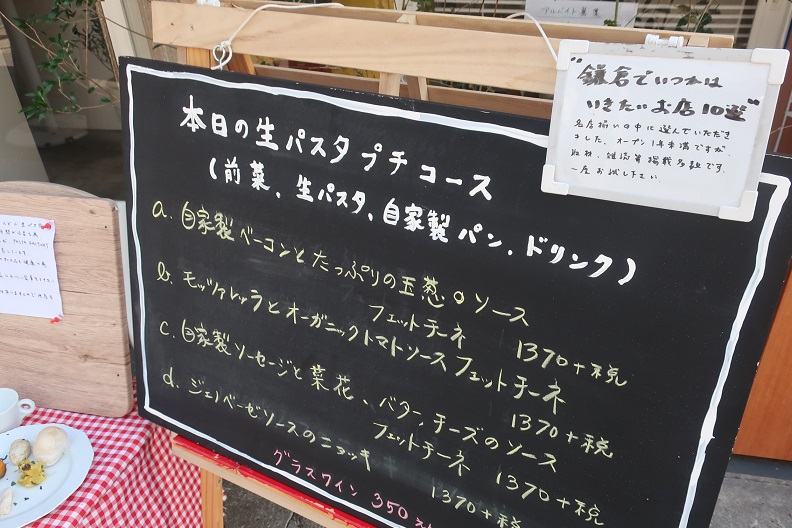 アルバイト募集
"鎌倉でいつかは
いきたいお店10選"
名店揃いの中に選んでいただき
ました。オープン1年未満ですが、
取材、雑誌等掲載多数です。
一度お試し下さい。
本日の生パスタプチコース
(前菜、生パスタ、自家製パン、ドリンク)
a. 自家製ベーコンとたっぷりの玉葱のソース
フェットチーネ 1370+税
b. モッツァレッラとオーガニックトマトソースフェットチーネ
1370+税
c. 自家製ソーセージと菜花、バター、チーズのソース
フェットチーネ 1370+税
d. ジェノベーゼソースのニョッキ
1370+税
グラスワイン 350